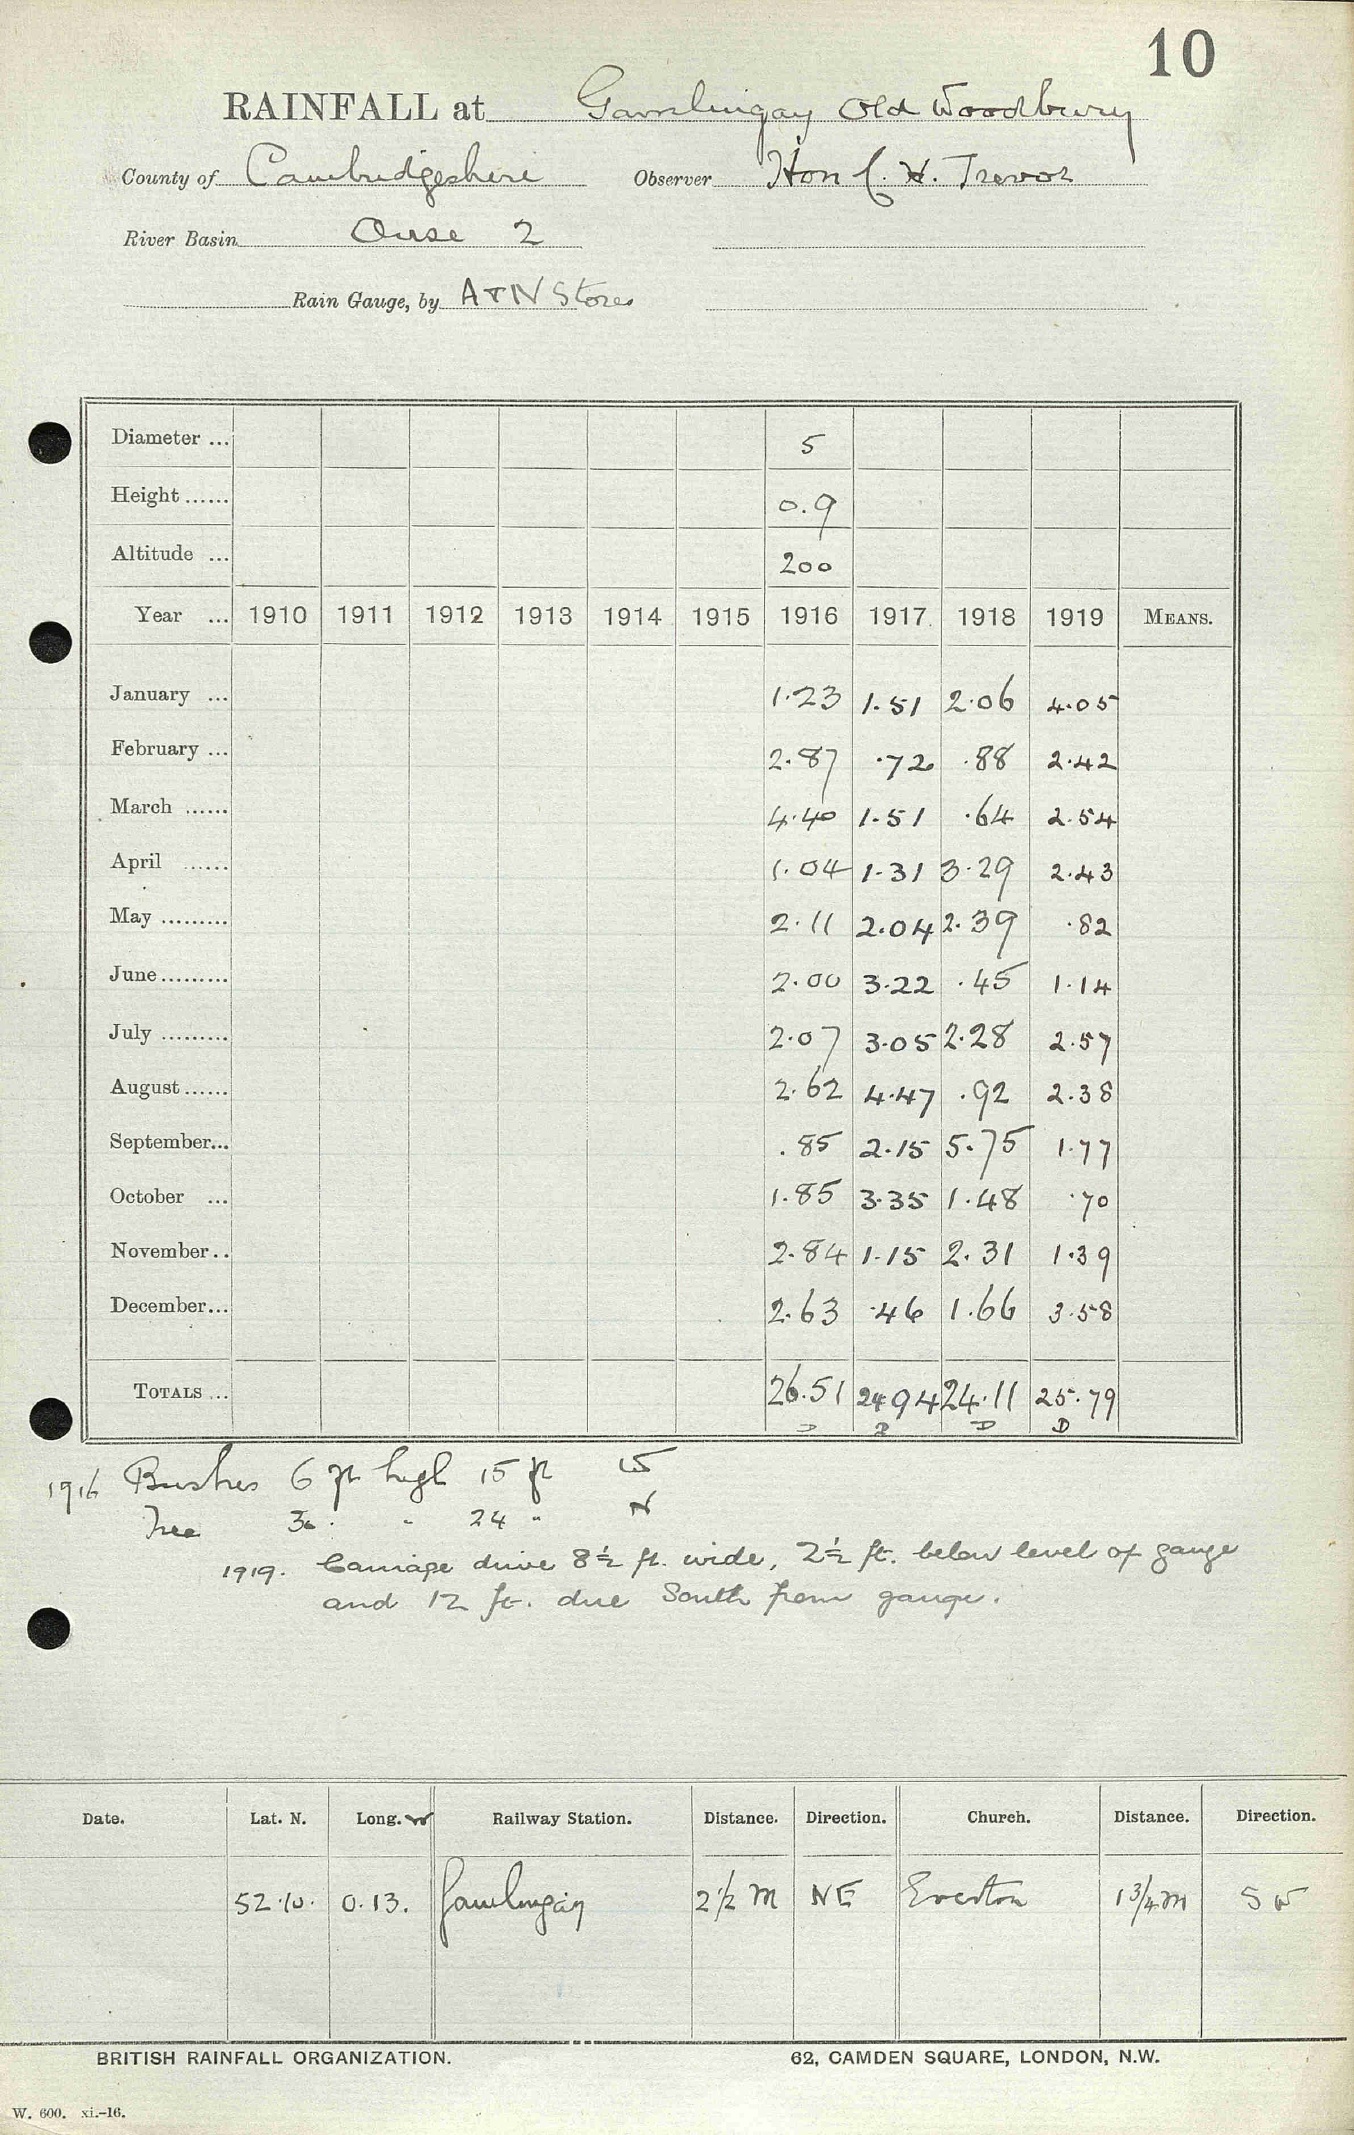 10
RAINFALL at Gamlingay Old Woodbury
County of Cambridgeshire Observer Hon C. H. Trevor
River Basin Ouse 2
Rain Gauge, by A & N Stores
Diameter ... 5
Height ...... 0.9
Altitude ... 200
Year ... 1910 1911 1912 1913 1914 1915 1916 1917 1918 1919 MEANS.
January ... 1.23 1.51 2.06 4.05
February ... 2.87 .72 .88 2.42
March ...... 4.40 1.51 .64 2.54
April ...... 1.04 1.31 3.29 2.43
May ......... 2.11 2.04 2.39 .82
June ......... 2.00 3.22 .45 1.14
July ......... 2.07 3.05 2.28 2.57
August ...... 2.62 4.47 .92 2.38
September... .85 2.15 5.75 1.77
October ... 1.85 3.35 1.48 .70
November.. 2.84 1.15 2.31 1.39
December... 2.63 .46 1.66 3.58
TOTALS ... 26.51 24.94 24.11 25.79
D D D D
1916 Bushes 6 ft high 15 ft W
Tree 30 " 24 " N
1919. Carriage drive 8½ ft. wide, 2½ ft. below level of gauge
and 12 ft. due South from gauge.
Date. Lat. N. Long. W Railway Station. Distance. Direction. Church. Distance. Direction.
52.10. 0.13. Gamlingay 2½ M NE Everton 1¾ M SW
BRITISH RAINFALL ORGANIZATION. 62, CAMDEN SQUARE, LONDON, N.W.
W. 600. xi.-16.